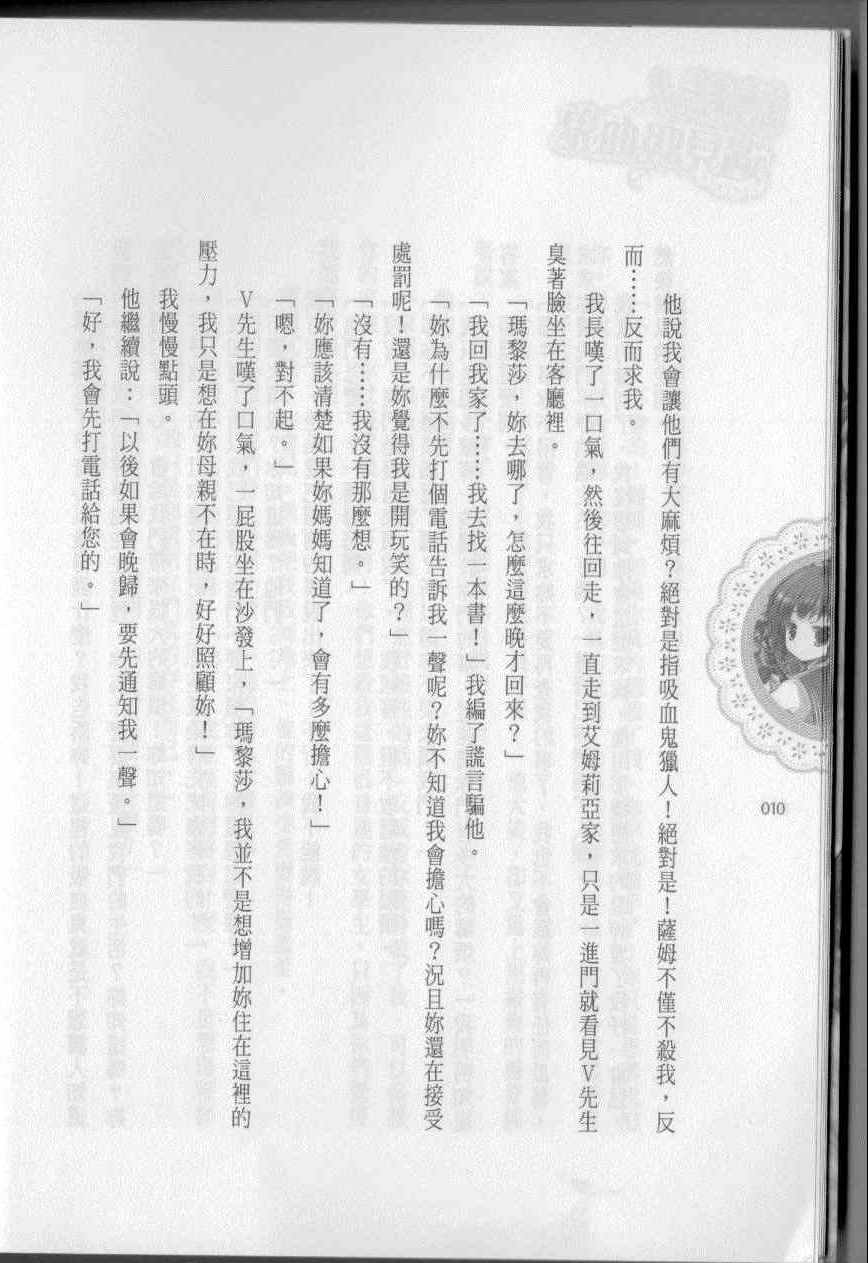 他說我會讓他們有大麻煩?絕對是指吸血鬼獵人!絕對是!薩姆不僅不殺我,反
而……反而求我。
我長嘆了一口氣,然後往回走,一直走到艾姆莉亞家,只是一進門就看見V先生
臭著臉坐在客廳裡。
「瑪黎莎,妳去哪了,怎麼這麼晚才回來?」
「我回我家了……我去找一本書!」我編了謊言騙他。
「妳為什麼不先打個電話告訴我一聲呢?妳不知道我會擔心嗎?況且妳還在接受
處罰呢!還是妳覺得我是開玩笑的?」
「沒有……我沒有那麼想。」
「妳應該清楚如果妳媽媽知道了,會有多麼擔心!」
「嗯,對不起。」
V先生嘆了口氣,一屁股坐在沙發上,「瑪黎莎,我並不是想增加妳住在這裡的
壓力,我只是想在妳母親不在時,好好照顧妳!」
我慢慢點頭。
他繼續說:「以後如果會晚歸,要先通知我一聲。」
「好,我會先打電話給您的。」
010